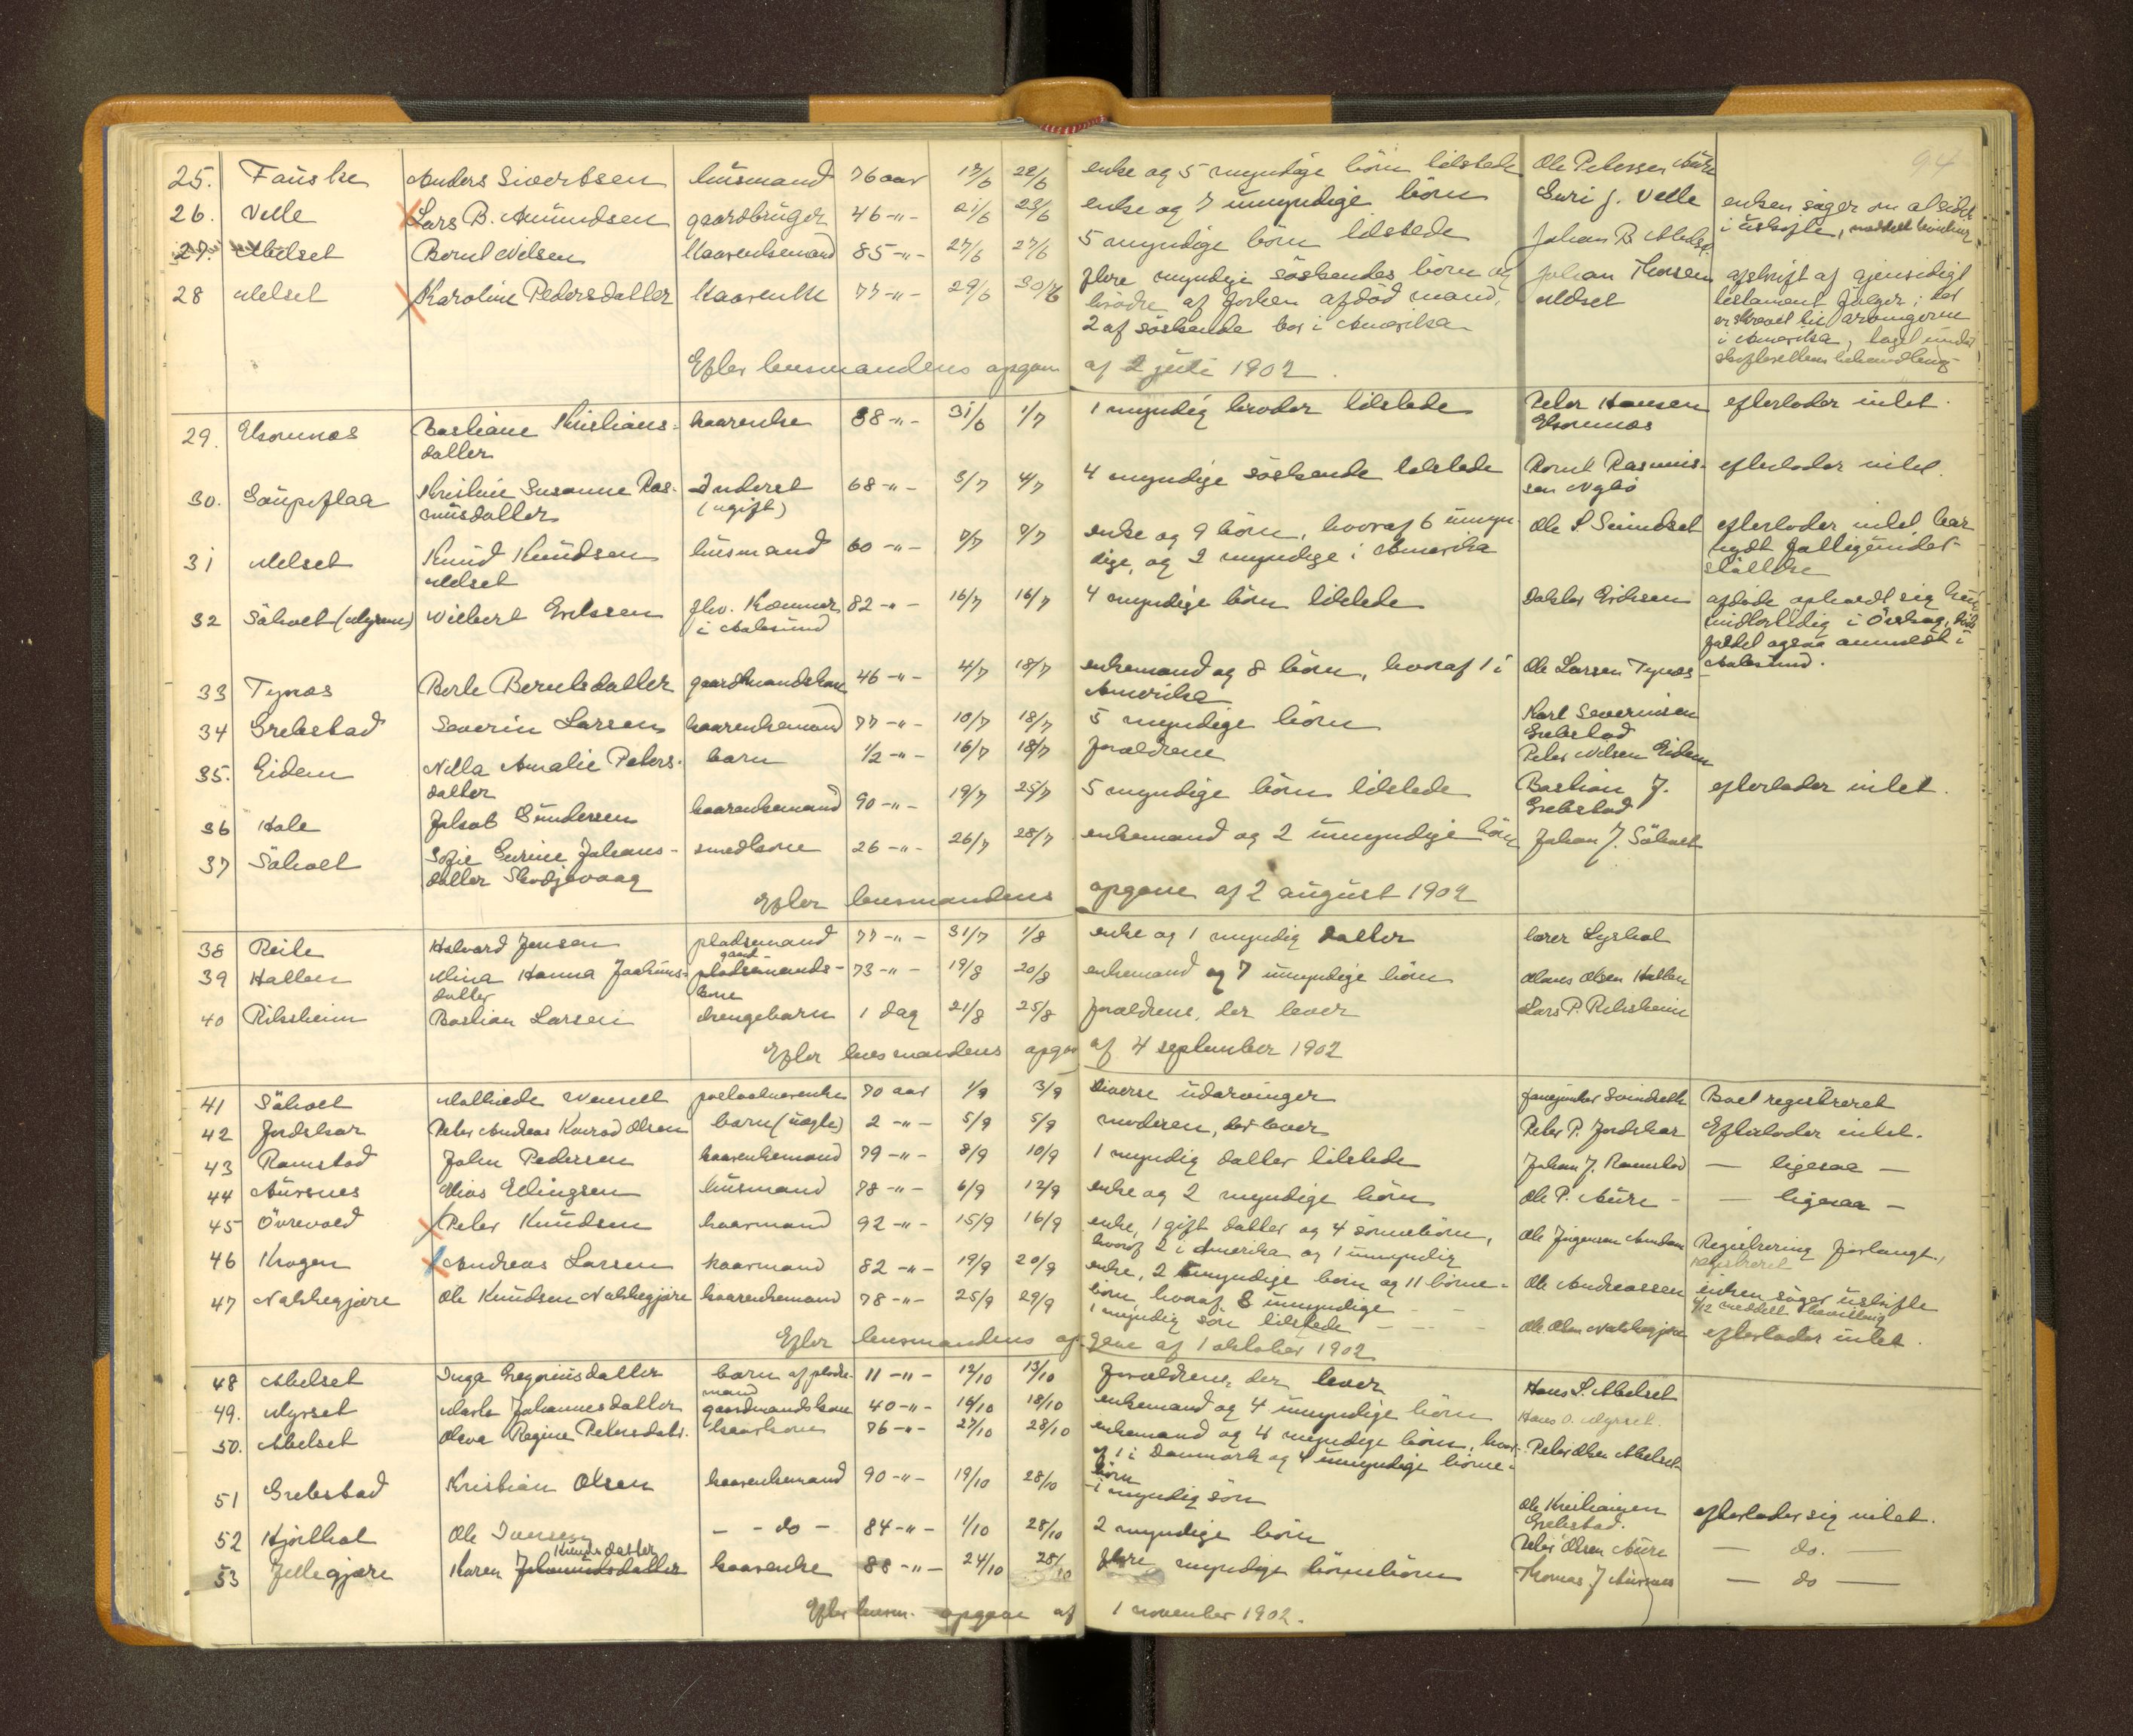 94
25. Fauske Anders Sivertsen husmand 76 aar 17/6 22/6 enke og 5 myndige börn tilstede Ole Petersen Aure
26. Velle Lars B. Amundsen gaardbruger 46 -"- 21/6 23/6 enke og 7 umyndige börn Guri J. Velle enken söger om at sidde
i uskifte,
27. Melset Bernt Nilsen kaarenkemand 85 -"- 27/6 27/6 5 myndige börn tilstede Johan B. Melset
28 Melset Karoline Pedersdatter kaarenke 77 -"- 29/6 30/6 flere myndige söskendes börn og Johan Thorsen afskrift af gjensidigt
brödre af forhen afdöd mand, Melset testament fölger; der
2 af söskende bor i Amerika er skrevet til arvingerne
i Amerika, taget under
skifterettens behandling
Efter lensmandens opgave af 2 juli 1902.
29. Ekornnæs Bastiane Kristians- kaarenke 88 -"- 31/6 1/7 1 myndig broder tilstede Peter Hansen efterlader intet.
datter Ekornnæs
30. Gaupeflaa Kristine Susanne Ras- Inderst 68 -"- 3/7 4/7 4 myndige söskende tilstede Bernt Rasmus- efterlader intet.
musdatter (ugift) sen Nybö
31 Melset Knud Knudsen husmand 60 -"- 7/7 9/7 enke og 9 börn, hvoraf 6 umyn- Ole S Svindset efterlader intet har
Melset dige, og 2 myndige i Amerika nydt fattigunder-
stöttelse
32 Söholt (Myrene) Wilbert Eriksen fhv. Kæmner 82 -"- 16/7 16/7 4 myndige börn tilstede Doktor Eriksen afdöde opholdt sig kun
i Aalesund midlertidig i Örskog, döds
faldet ogsaa anmeldt i
Aalesund.
33 Tynæs Berte Berntsdatter gaardmandskone 46 -"- 4/7 18/7 enkemand og 8 börn, hvoraf 1 i Ole Larsen Tynæs
Amerika
34 Grebstad Severin Larsen kaarenkemand 77 -"- 10/7 18/7 5 myndige börn Karl Severinsen
Grebstad
35. Eidem Nilla Amalie Peters- barn 1/2 -"- 16/7 18/7 forældrene Peter Nilsen Eidem
datter
36 Hole Jakob Gundersen kaarenkemand 90 -"- 19/7 25/7 5 myndige börn tilstede Bastian J. efterlader intet.
Grebstad
37 Söholt Sofie Gurine Johans- smedkone 26 -"- 26/7 28/7 enkemand og 2 umyndige börn Johan J. Söholt
datter Skodjevaag
Efter lensmandens opgave af 2 august 1902
38 Reite Halvard Jensen pladsemand 77 -"- 31/7 1/8 enke og 1 myndig datter lærer Lyshol
39 Hatlen Mina Hanna Joakims- gaard- pladsemands- 73 -"- 19/8 20/8 enkemand og 7 umyndige börn Olaus Olsen Hatlen
datter kone
40 Riksheim Bastian Larsen drengebarn 1 dag 21/8 25/8 forældrene, der lever Lars P. Riksheim
Efter lensmandens opgave af 4 september 1902
41 Söholt Mathilde Wenzel 70 aar 1/9 3/9 Diverse udarvinger Svindseth Boet registreret
42 Jordskar Peter Andreas Konrad Olsen barn (uægte) 2 -"- 5/9 5/9 moderen, der lever Peter P. Jordskar Efterlader intet.
43 Ramstad John Pedersen kaarenkemand 79 -"- 8/9 10/9 1 myndig datter tilstede Johan J. Ramstad — ligesaa —
44 Aursnes Elias Ellingsen husmand 78 -"- 6/9 12/9 enke og 2 myndige börn Ole P. Aure - — ligesaa —
45 Övrevold Peter Knudsen kaarmand 92 -"- 15/9 16/9 enke, 1 gift datter og 4 sönnebörn, Ole Jörgensen Amdam Registrering forlangt,
hvoraf 2 i Amerika og 1 umyndig registreret
46 Krogen Andreas Larsen kaarmand 82 -"- 19/9 20/9 enke, 2 myndige börn og 11 börne- Ole Andreassen enken söger uskifte
börn hvoraf 8 umyndige - - 4/12 meddelt bevilling
47 Nakkegjære Ole Knudsen Nakkegjære kaarenkemand 78 -"- 25/9 29/9 1 myndig sön tilstede - - - Ole Olsen Nakkegjære efterlader intet.
Efter lensmandens opgave af 1 oktober 1902
48 Melset Inga Gregoriusdatter barn af plads- 11 -"- 12/10 13/10 forældrene, der lever Hans S. Melset
mand
49. Myrset Marte Johannesdatter gaardmandskone 40 -"- 14/10 18/10 enkemand og 4 umyndige börn Hans O. Myrset.
50. Melset Oleva Regine Petersdatr. kaarkone 76 -"- 27/10 28/10 enkemand og 4 myndige börn, hvor- Peter Olsen Melset
af 1 i Danmark og 4 umyndige börne-
börn
51 Grebstad Kristian Olsen kaarenkemand 90 -"- 19/10 28/10 1 myndig sön Ole Kristiansen efterlader sig intet.
Grebstad.
52 Hjorthol Ole Iversen - - do - 84 -"- 1/10 28/10 2 myndige börn Peter Olsen Aure — do. —
Knudsdatter
53 Jellegjære Karen Johannesdatter kaarenke 88 -"- 24/10 28/10 flere myndige börnebörn Thomas J Aursnes — do —
Efter lensm. opgave af 1 november 1902.